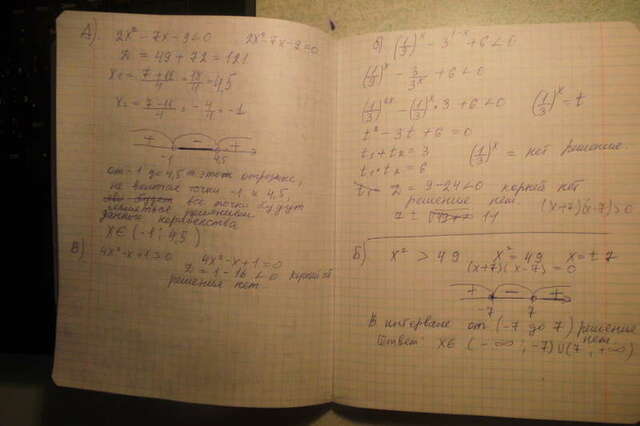 А). 2x² - 7x - 9 < 0   2x² - 7x - 9 = 0
D = 49 + 72 = 121
x₁ = (7 + 11)/4 = 18/4 = 4,5
x₂ = (7 - 11)/4 = -4/4 = -1
+ - +
-1 4,5
от -1 до 4,5 этом отрезке,
не включая точки -1 и 4,5,
все точки будут
являться решением
данного неравенства
x ∈ (-1; 4,5)
В) 4x² - x + 1 > 0   4x² - x + 1 = 0
D = 1 - 16 < 0 корней
решения нет.
(1/9)^x - 3^(1-x) + 6 < 0
(1/9)^x - 3/3^x + 6 < 0
(1/3)^2x - (1/3)^x · 3 + 6 < 0   (1/3)^x = t
t² - 3t + 6 = 0
t₁ + t₂ = 3   (1/3)^x = нет решение.
t₁ · t₂ = 6
D = 9 - 24 < 0 корней нет
решение нет   (x+7)(x-7) > 0
Б) x² > 49   x² = 49   x = ± 7
(x+7)(x-7) = 0
+ - +
-7 7
В интервале от (-7 до 7) решение
нет
Ответ: x ∈ (-∞; -7) ∪ (7; +∞)